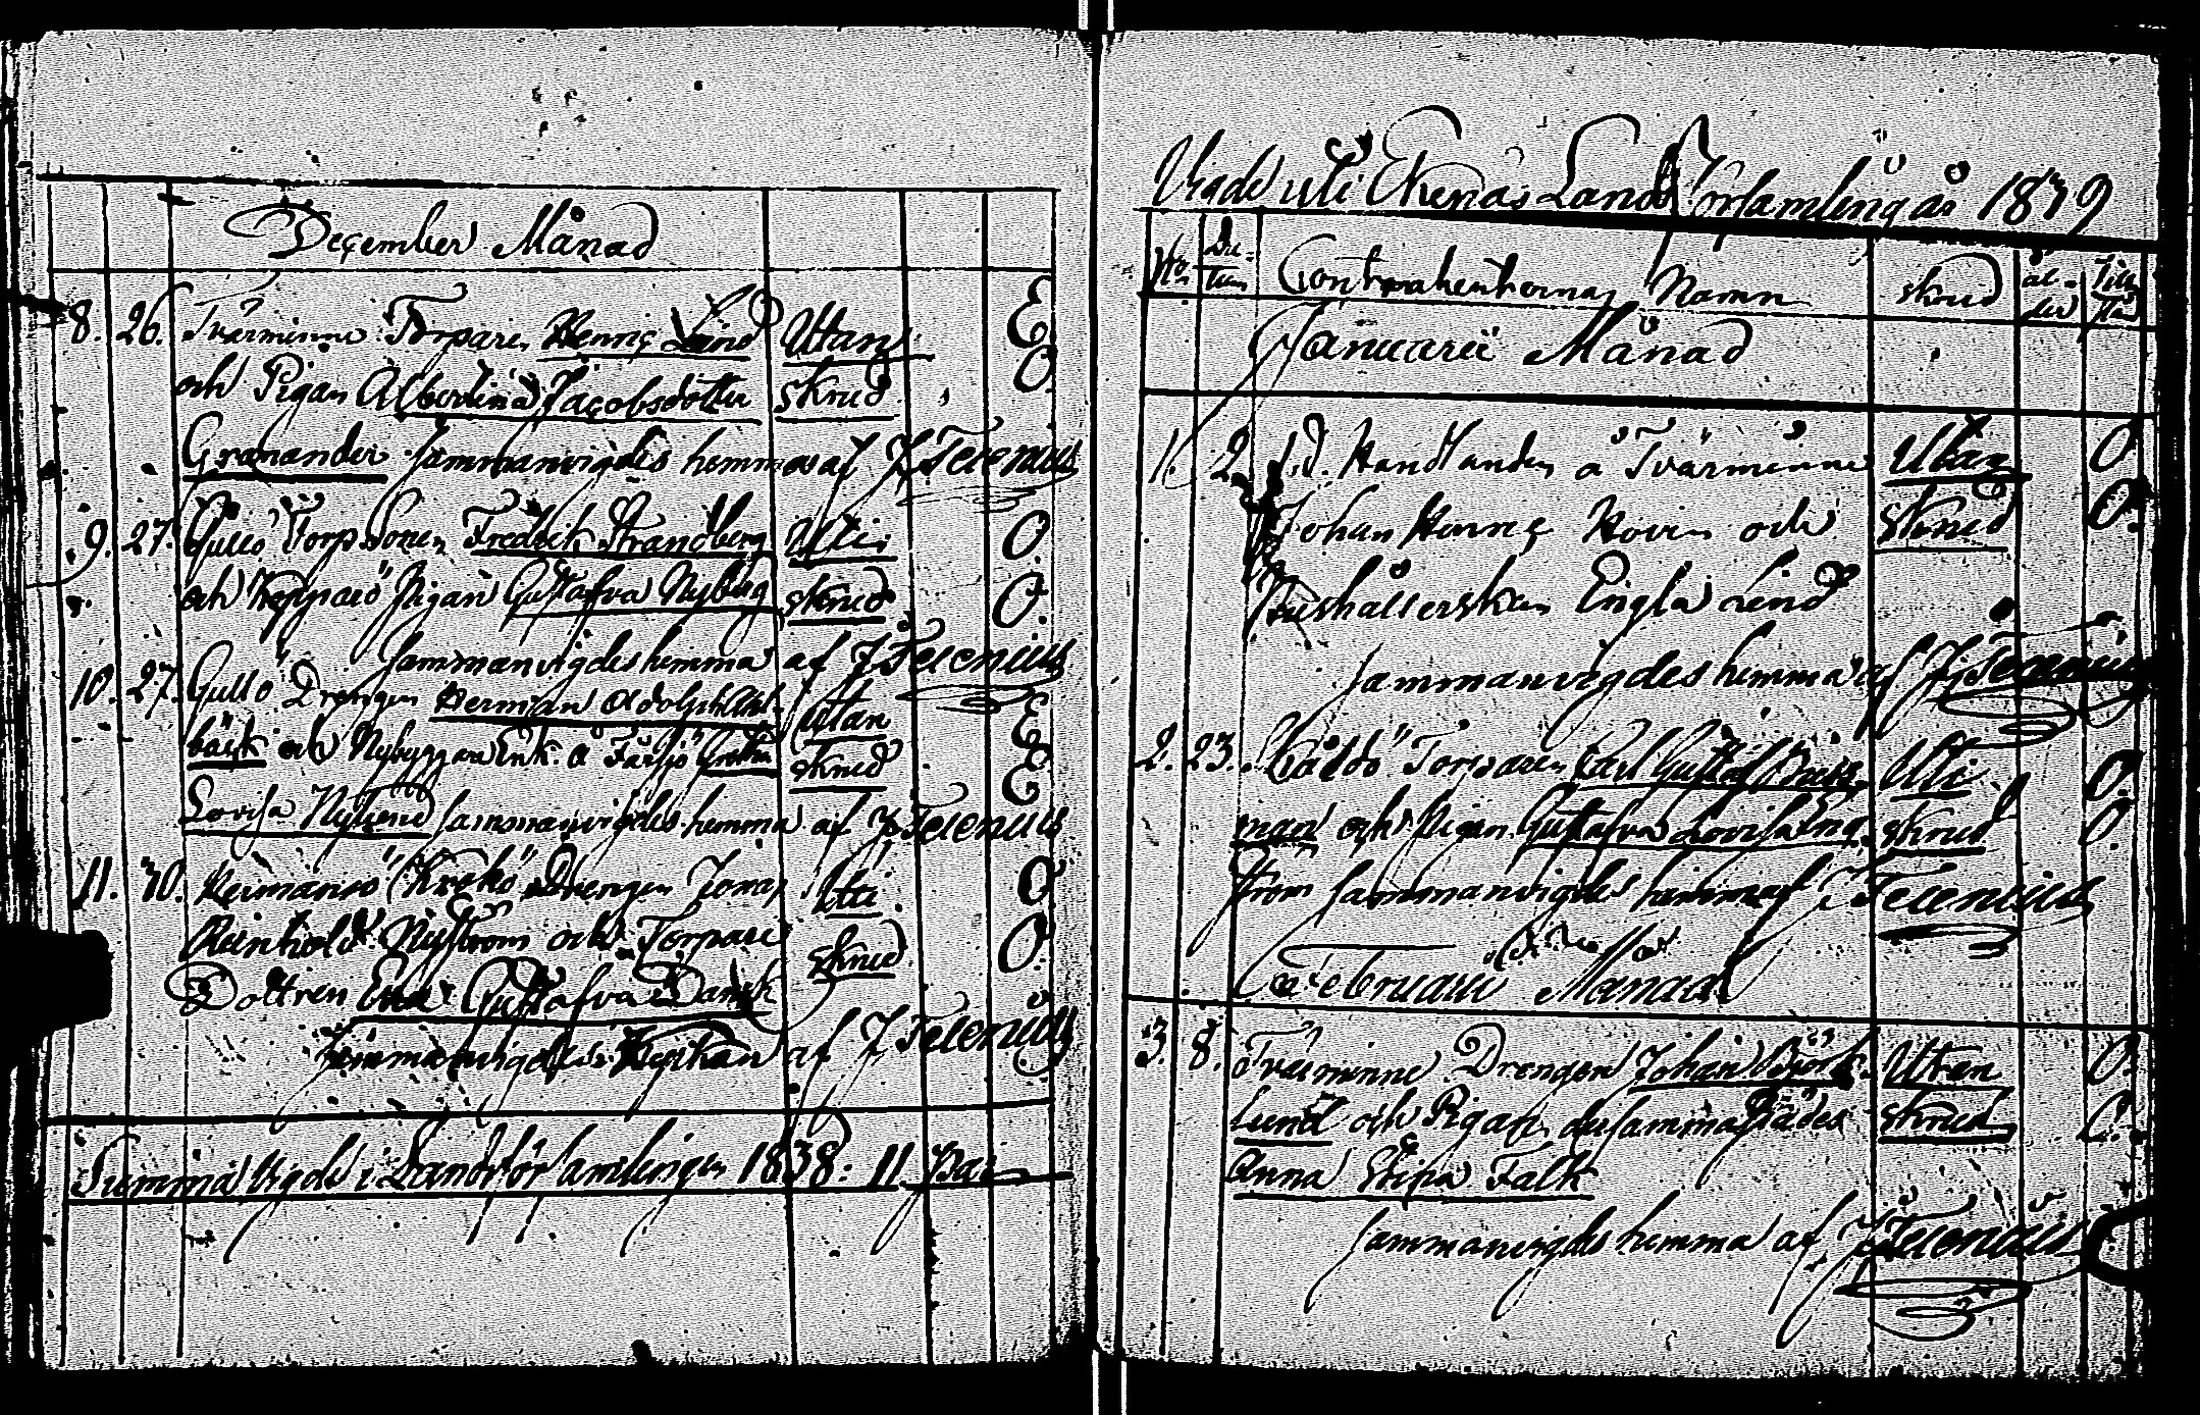 December Månad
8. 26. Tvärminne Torparen Henric Lind Utan E
och Pigan Albertina Jacobsdotter skrud O
Granander sammanvigdes hemma af J Telenius
9. 27. Gullö Torp Sonen Fredrik Strandberg Uti O.
och Pigan Gustafva Nyberg skrud O.
sammanvigdes hemma af J Telenius
10. 27. Gullö Drengen Herman Adolph Utan E
bäck och Nybyggare Enk. å skrud E
Lovisa Nylund sammanvigdes hemma af J Telenius
11. 30. Drengen Jonas Uti O
Reinhold Nyström och Torpare skrud O.
Dottren Eva Gustafva Dansk
sammanvigdes i Kyrkan af J Telenius
Summa Vigde i Landsförsamlingen 1838: 11 Par
Vigde uti Ekenäs Lands Församling år 1839
No Da-tum Contrahenternas Namn skrud ål-der
Januarii Månad
1. 2. Handlanden å Tvärminne Utan O.
Johan Henric Hovin och skrud O.
Hushållerskan Engla Lind
sammanvigdes hemma af J Telenius
2. 23. Torparen Carl Gustaf Uti O.
man och Pigan Gustafva Lovisa Eng- skrud O.
ström sammanvigdes hemma af J Telenius
Februarii Månad
3. 8. Tvärminne Drengen Johan Björk- Utan O.
lund och Pigan dersammastädes skrud O.
Anna Stina Falk
sammanvigdes hemma af J Telenius